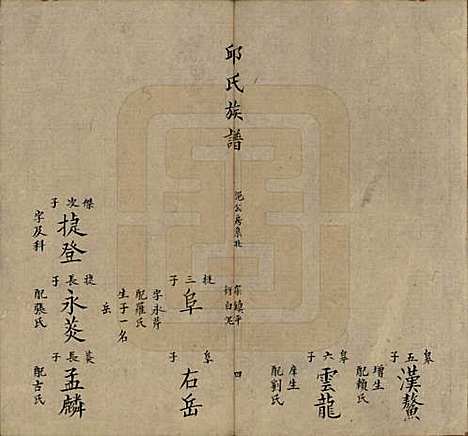 臯五子
漢鰲
增生
配賴氏
臯六子
雲龍
庠生
配劉氏
邱氏族譜
四
三子
阜
字永芹
配羅氏
生子一名
岳
阜子
右岳
傑次子
捷登
字及科
捷長子
永英
配張氏
英長子
孟麟
配古氏